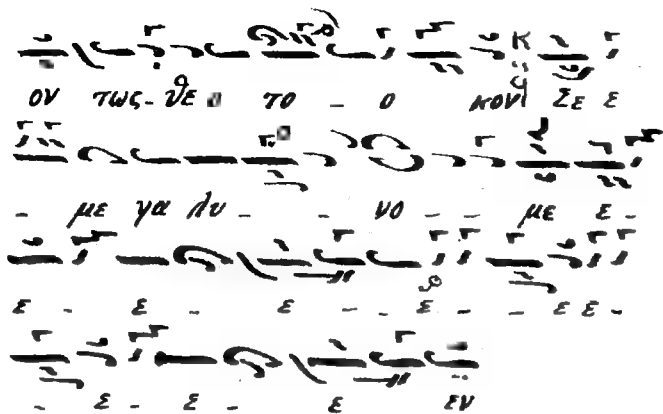 ον τως - θε το - ο κον Σε ε
- με γα λυ - - νο - - με ε -
ε - ε - ε - - ε - - ε ε -
- ε - ε - ε εν